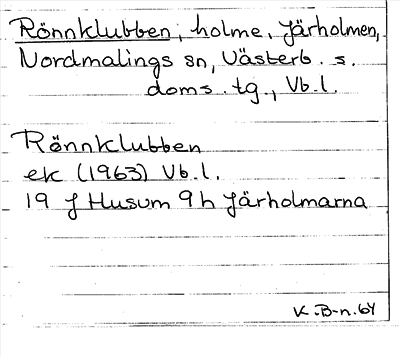 Rönnklubben, holme, Järholmen,
Nordmalings sn, Västerb. s.
doms. tg., Vb. l.
Rönnklubben
ek (1963) Vb. l.
19 f Husum 9 h Järholmarna
K. B-n. 64